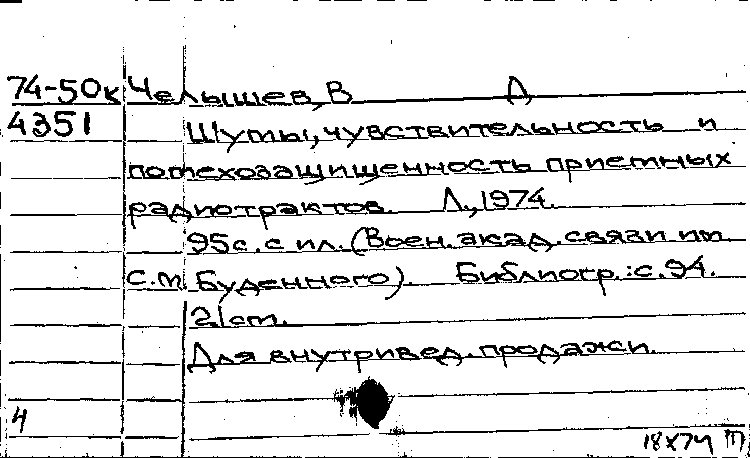 74-50к Челышев, В Д
4351 Шумы, чувствительность и
помехозащищенность приемных
радиотрактов. Л., 1974.
95с. с ил. (Воен. акад. связи им.
С.М. Буденного). Библиогр.: с. 94.
21 см.
Для внутривед. продажи.
4
18X74